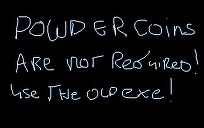 POWDER Coins
ARE not Required!
use THE OLD exe!